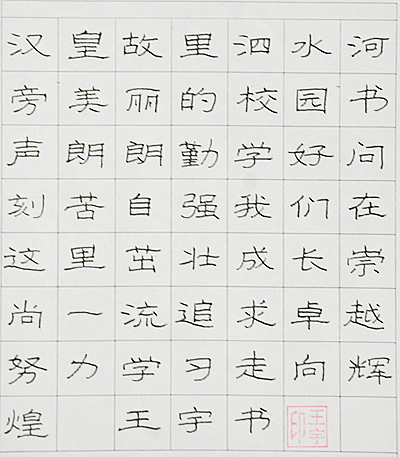 汉皇故里泗水河
旁美丽的校园书
声朗朗勤学好问
刻苦自强我们在
这里茁壮成长崇
尚一流追求卓越
努力学习走向辉
煌 王宇书
王宇印